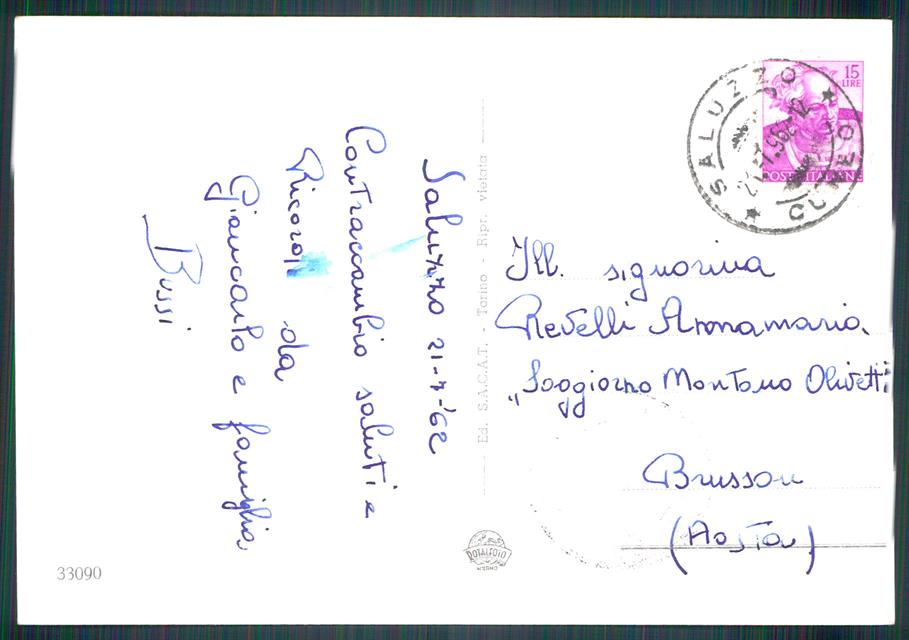 Saluzzo 21-7-'62
Contraccambio saluti e
Ricordi
da
Giancarlo e famiglia
Bussi
Ed. S.A.C.A.T. - Torino - Ripr. vietata
15
LIRE
POSTE ITALIANE
SALUZZO
CUNEO
Ill. signorina
Revelli Annamaria
"Soggiorno Montano Olivetti
Brusson
(Aosta)
ROTALFOTO
33090